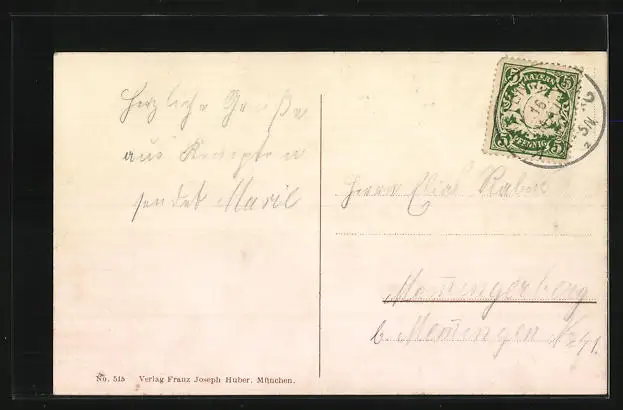 Herzliche Grüße
aus Kempten
sendet
5 BAYERN 5
5 PFENNIG 5
16
2
5 N.
Herrn Elias Rabus
Mem̄ingerberg
b. Mem̄ingen No 41.
No. 515 Verlag Franz Joseph Huber, München.